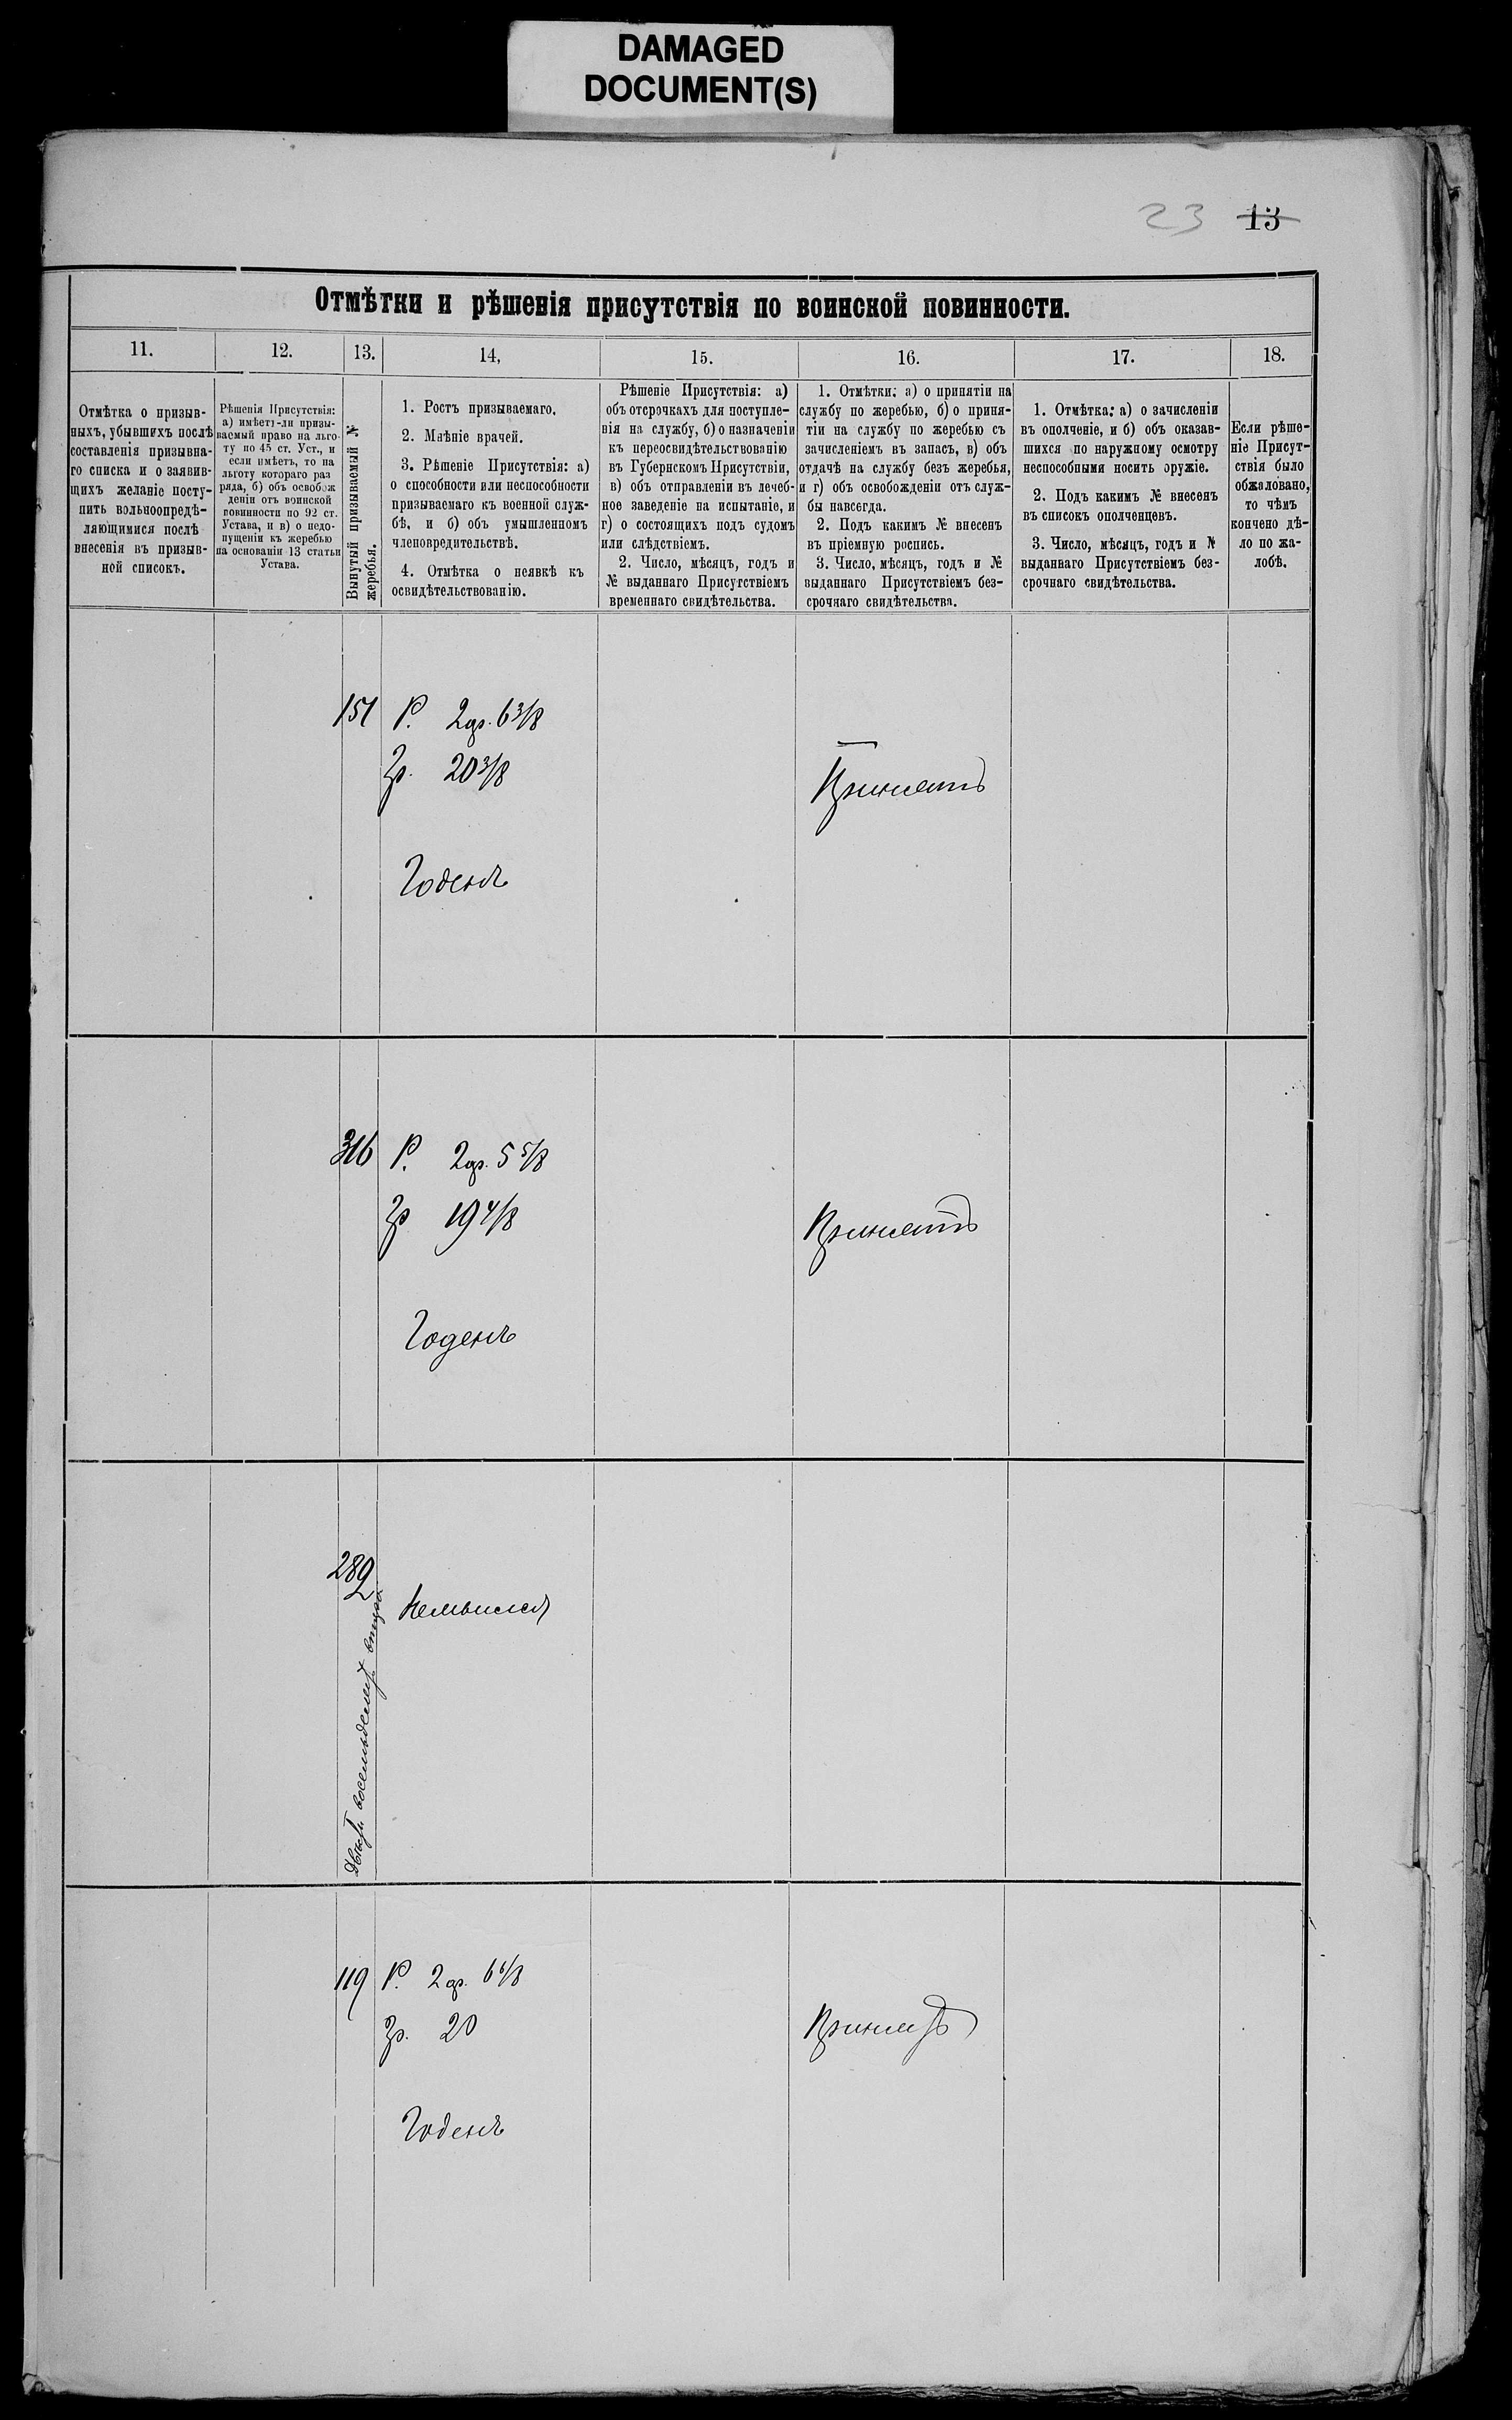 DAMAGED
DOCUMENT(S)
23 13
Отмѣтки и рѣшенія присутствія по воинской повинности.
11. 12. 13. 14. 15. 16. 17. 18.
Отмѣтка о призыв-
ныхъ, убывшихъ послѣ
составленія призывна-
го списка и о заявив-
щихъ желаніе посту-
пить вольноопредѣ-
ляющимися послѣ
внесенія въ призыв-
ной список.
Рѣшенія Присутствія:
а) имѣетъ-ли призы-
ваемый право на льго-
ту по 45 ст. Уст., и
если имѣетъ, то на
льготу котораго раз
ряда, б) объ освобож
деніи отъ воинской
повинности по 92 ст.
Устава, и в) о недо-
пущеніи къ жеребью
на основаніи 13 статьи
Устава.
Вынутый призываемый №
жеребья.
1. Ростъ призываемаго.
2. Мнѣніе врачей.
3. Рѣшеніе Присутствія: а)
о способности или неспособности
призываемаго къ военной служ-
бѣ, и б) объ умышленномъ
членовредительствѣ.
4. Отмѣтка о неявкѣ къ
освидѣтельствованію.
Рѣшеніе Присутствія: а)
объ отсрочкахъ для поступле-
нія на службу, б) о назначеніи
къ переосвидѣтельствованію
въ Губернскомъ Присутствіи,
в) объ отправленіи въ лечеб-
ное заведеніе на испытаніе, и
г) о состоящихъ подъ судомъ
или слѣдствіемъ.
2. Число, мѣсяцъ, годъ и
№ выданнаго Присутствіемъ
временнаго свидѣтельства.
1. Отмѣтки: а) о принятіи на
службу по жеребью, б) о приня-
тіи на службу по жеребью съ
зачисленіемъ въ запасъ, в) объ
отдачѣ на службу безъ жеребья,
и г) объ освобожденіи отъ служ-
бы навсегда.
2. Подъ какимъ № внесенъ
въ пріемную роспись.
3. Число, мѣсяцъ, годъ и №
выданнаго Присутствіемъ без-
срочнаго свидѣтельства.
1. Отмѣтка: а) о зачисленіи
въ ополченіе, и б) объ оказав-
шихся по наружному осмотру
неспособными носить оружіе.
2. Подъ какимъ № внесенъ
въ списокъ ополченцевъ.
3. Число, мѣсяцъ, годъ и №
выданнаго Присутствіемъ без-
срочнаго свидѣтельства.
Если рѣше-
ніе Присут-
ствія было
обжаловано,
то чѣмъ
кончено дѣ-
ло по жа-
лобѣ.
151 Р. 2 ар. 6 3/8
Гр. 20 3/8
Принятъ
Годенъ
316 Р. 2 ар. 5 5/8
Гр 19 4/8
Принятъ
Годенъ
282
Неявился
Двѣсти восемьдесятъ второй
119 Р. 2 ар. 6 6/8
Гр. 20
Принятъ
Годенъ